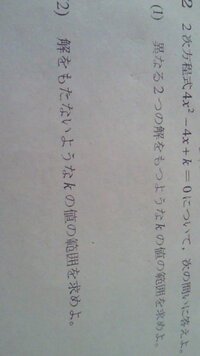 2 2次方程式4x²－4x＋k＝0について，次の問いに答えよ。
(1) 異なる2つの解をもつようなkの値の範囲を求めよ。
2) 解をもたないようなkの値の範囲を求めよ。